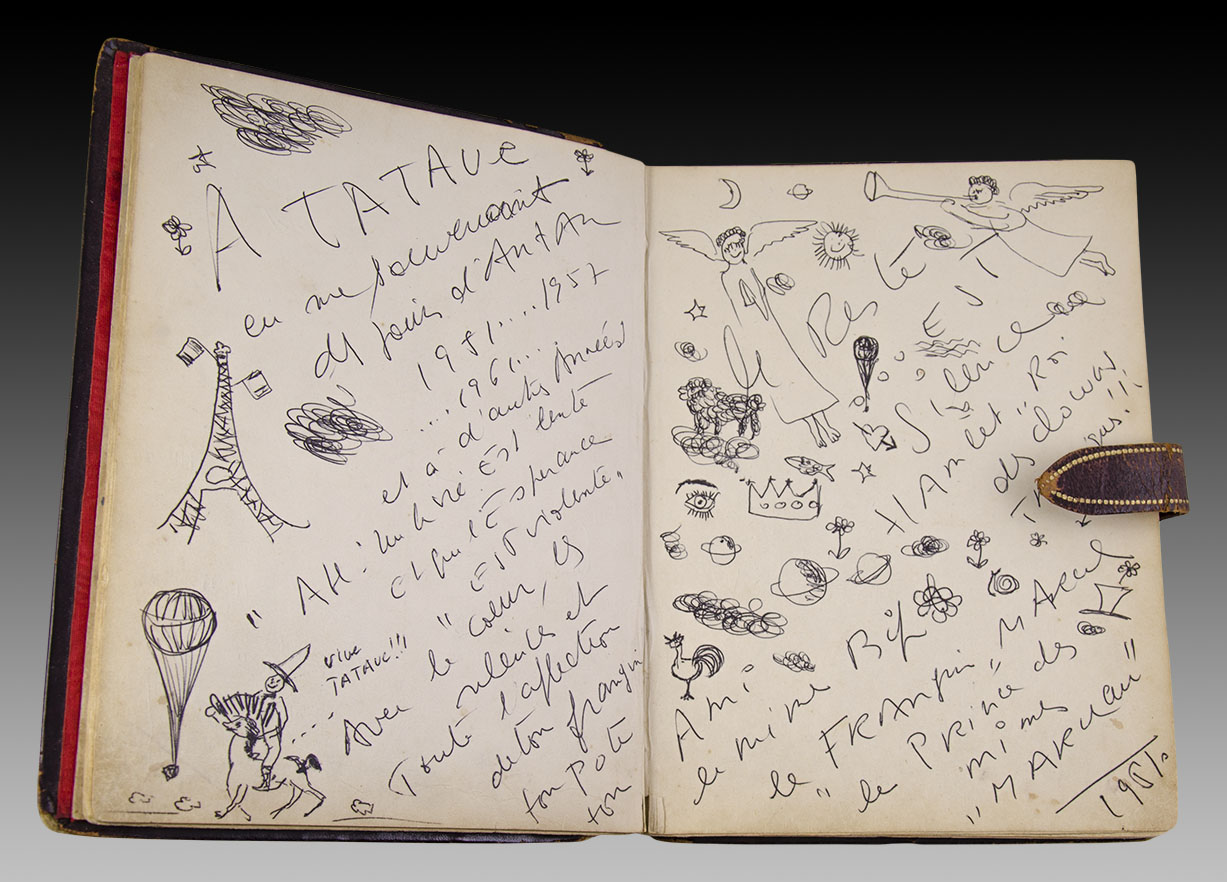 A TATAVE
en me souvenant
des jours d'Antan
1951....1957
....1961....
et à d'autres Années
"AH! Que la vie est lente
et que l'Espérance
est violente"
vive
TATAVE!!!
Avec le coeur, les
silences et
Toute l'affection
de ton frangin
ton Pote
ton
Le
Reste
EST
Silence
HAMLET "Roi
des clowns
!!!
Ami Bip
le mime
le "FRANgin" MARCEL
le Prince des
mimes
"MARCEAU"